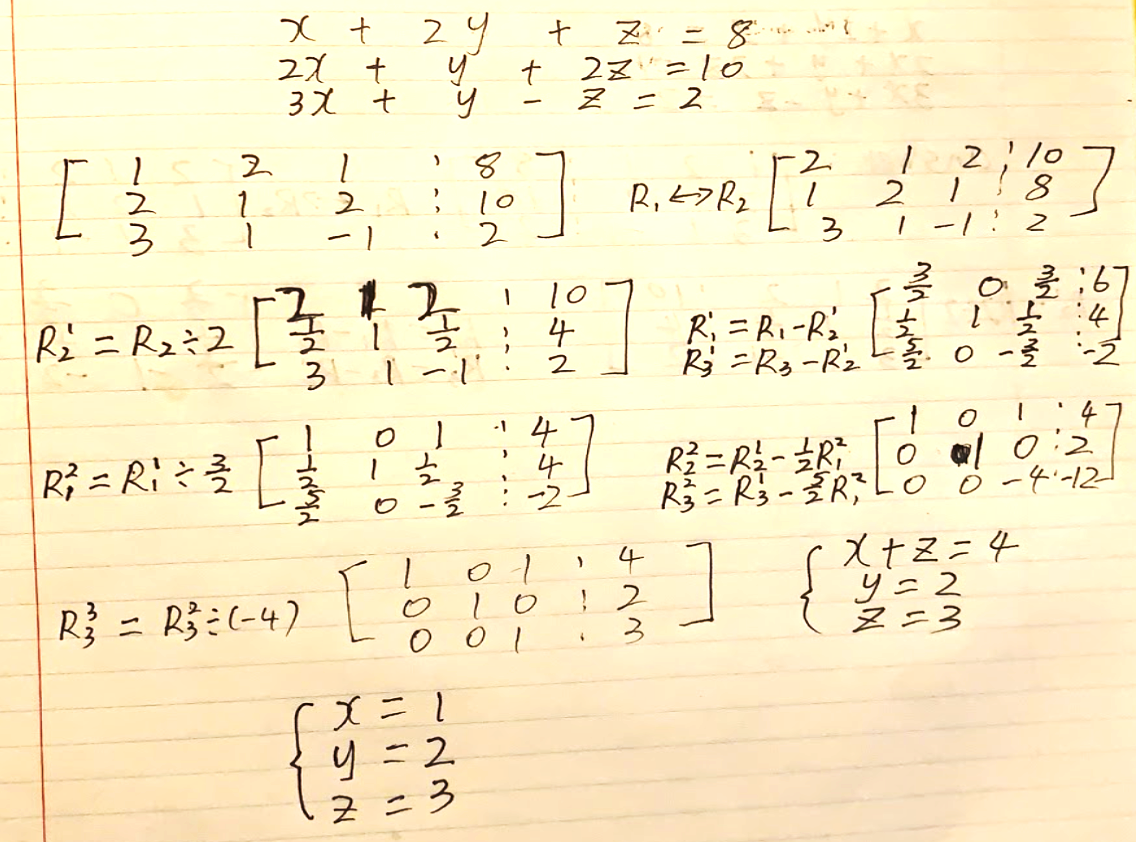 x + 2y + z = 8
2x + y + 2z = 10
3x + y - z = 2
[ 1 2 1 ⋮ 8 ]
[ 2 1 2 ⋮ 10 ]
[ 3 1 -1 ⋮ 2 ]
R₁ ↔ R₂
[ 2 1 2 ⋮ 10 ]
[ 1 2 1 ⋮ 8 ]
[ 3 1 -1 ⋮ 2 ]
R₂¹ = R₂ ÷ 2
[ 2 1 2 ⋮ 10 ]
[ 1/2 1 1/2 ⋮ 4 ]
[ 3 1 -1 ⋮ 2 ]
R₁¹ = R₁ - R₂¹
R₃¹ = R₃ - R₂¹
[ 3/2 0 3/2 ⋮ 6 ]
[ 1/2 1 1/2 ⋮ 4 ]
[ 5/2 0 -3/2 ⋮ -2 ]
R₁² = R₁¹ ÷ 3/2
[ 1 0 1 ⋮ 4 ]
[ 1/2 1 1/2 ⋮ 4 ]
[ 5/2 0 -3/2 ⋮ -2 ]
R₂² = R₂¹ - 1/2 R₁²
R₃² = R₃¹ - 5/2 R₁²
[ 1 0 1 ⋮ 4 ]
[ 0 1 0 ⋮ 2 ]
[ 0 0 -4 ⋮ -12 ]
R₃³ = R₃² ÷ (-4)
[ 1 0 1 ⋮ 4 ]
[ 0 1 0 ⋮ 2 ]
[ 0 0 1 ⋮ 3 ]
{ x + z = 4
y = 2
z = 3
{ x = 1
y = 2
z = 3